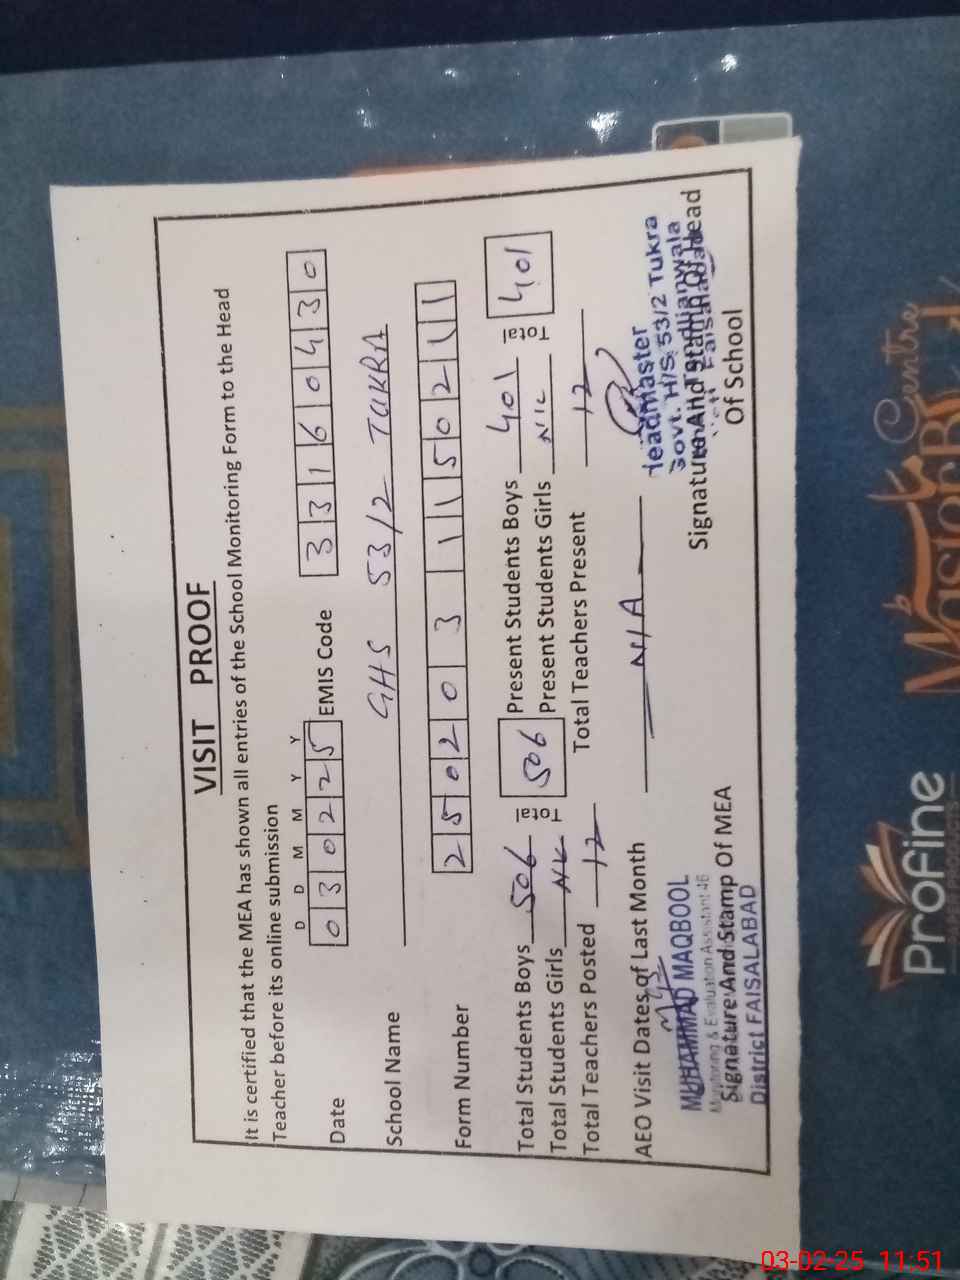 VISIT PROOF
It is certified that the MEA has shown all entries of the School Monitoring Form to the Head
Teacher before its online submission
D D M M Y Y
Date 0 3 0 2 2 5 EMIS Code 3 3 1 6 0 4 3 0
School Name GHS 53/2 TUKRA
Form Number 2 5 0 2 0 3 1 1 5 0 2 1 1
Total Students Boys 506 Total 506 Present Students Boys 401 Total 401
Total Students Girls NIL Present Students Girls NIL
Total Teachers Posted 12 Total Teachers Present 12
AEO Visit Dates of Last Month N/A
MUHAMMAD MAQBOOL
Monitoring & Evaluation Assistant 46
Signature And Stamp Of MEA
District FAISALABAD
Headmaster
Govt. H/S 53/2 Tukra
Signature And Stamp Of Head
Of School
Profine
Master
Centre
03-02-25 11:51